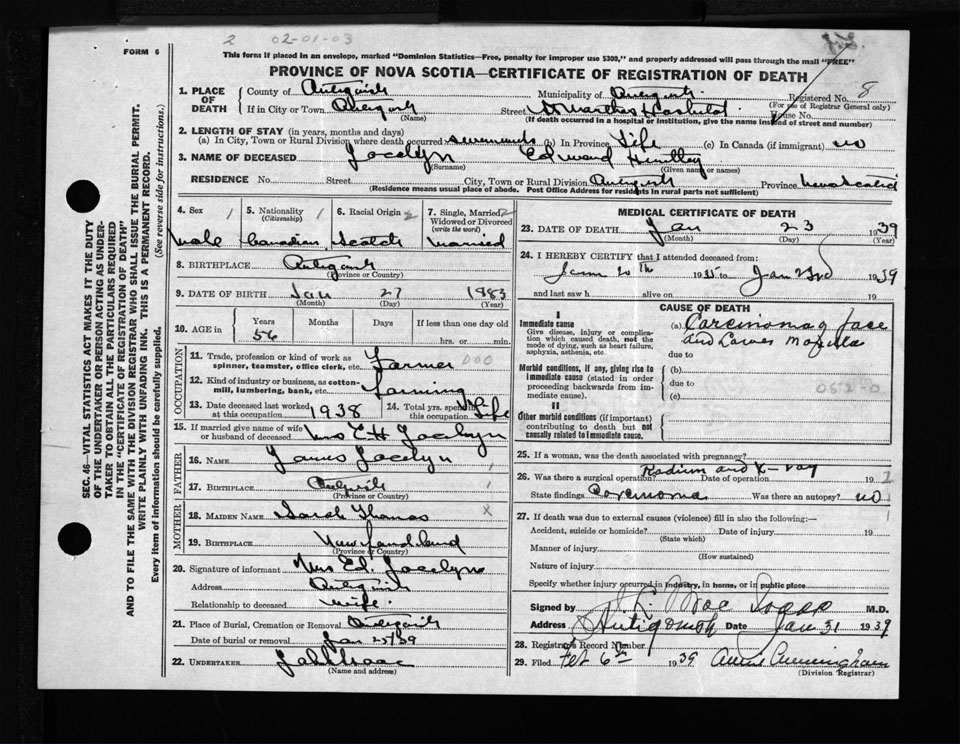 2 02-01-03
FORM 6
This form if placed in an envelope, marked "Dominion Statistics—Free, penalty for improper use $300," and properly addressed will pass through the mail "FREE"
PROVINCE OF NOVA SCOTIA—CERTIFICATE OF REGISTRATION OF DEATH
1. PLACE OF DEATH
County of Antigonish Municipality of Antigonish Registered No. 8
(For use of Registrar General only)
If in City or Town Antigonish Street St Marthas Hospital House No.
(Name) (If death occurred in a hospital or institution, give the name instead of street and number)
2. LENGTH OF STAY (in years, months and days)
(a) In City, Town or Rural Division where death occurred (b) In Province Life (c) In Canada (if immigrant) no
3. NAME OF DECEASED Jocelyn Edward Huntley
(Surname) (Given name or names)
RESIDENCE No. Street City, Town or Rural Division Antigonish Province Nova Scotia
(Residence means usual place of abode. Post Office Address for residents in rural parts not sufficient)
4. Sex 1 Male
5. Nationality 1 (Citizenship) Canadian
6. Racial Origin 2 Scotch
7. Single, Married, Widowed or Divorced (write the word) 2 Married
8. BIRTHPLACE Antigonish
(Province or Country)
9. DATE OF BIRTH Jan 27 1883
(Month) (Day) (Year)
10. AGE in Years Months Days If less than one day old
56 hrs. or min.
OCCUPATION
11. Trade, profession or kind of work as spinner, teamster, office clerk, etc. Farmer 000
12. Kind of industry or business, as cotton-mill, lumbering, bank, etc. Farming
13. Date deceased last worked at this occupation 1938
14. Total yrs. spent in this occupation Life
15. If married give name of wife or husband of deceased Mrs E H Jocelyn
FATHER
16. NAME James Jocelyn
17. BIRTHPLACE Antigonish 1
(Province or Country)
MOTHER
18. MAIDEN NAME Sarah Thomas x
19. BIRTHPLACE Newfoundland
(Province or Country)
20. Signature of informant Mrs Ed. Jocelyn
Address Antigonish
Relationship to deceased wife
21. Place of Burial, Cremation or Removal Antigonish
Date of burial or removal Jan 25/39
22. UNDERTAKER
(Name and address)
MEDICAL CERTIFICATE OF DEATH
23. DATE OF DEATH Jan 23 1939
(Month) (Day) (Year)
24. I HEREBY CERTIFY that I attended deceased from:
20th 1935 to Jan 23rd 1939
and last saw h alive on 19
CAUSE OF DEATH
I
Immediate cause
Give disease, injury or complication which caused death, not the mode of dying, such as heart failure, asphyxia, asthenia, etc.
(a) Carcinoma of face and Maxilla
due to
Morbid conditions, if any, giving rise to immediate cause (stated in order proceeding backwards from immediate cause).
(b)
due to 052-0
(c)
II
Other morbid conditions (if important) contributing to death but not causally related to immediate cause.
25. If a woman, was the death associated with pregnancy?
Radium and X-ray
26. Was there a surgical operation? Date of operation 19
State findings Carcinoma Was there an autopsy? no
27. If death was due to external causes (violence) fill in also the following:—
Accident, suicide or homicide? Date of injury 19
(State which)
Manner of injury
(How sustained)
Nature of injury
Specify whether injury occurred in industry, in home, or in public place
Signed by M.D.
Address Antigonish Date Jan 31 1939
28. Registrar's Record Number
29. Filed Feb 6th 1939 Cunningham
(Division Registrar)
SEC. 46—VITAL STATISTICS ACT MAKES IT THE DUTY
OF THE UNDERTAKER OR PERSON ACTING AS UNDERTAKER
TO OBTAIN ALL THE PARTICULARS REQUIRED
IN THE "CERTIFICATE OF REGISTRATION OF DEATH"
AND TO FILE THE SAME WITH THE DIVISION REGISTRAR WHO SHALL ISSUE THE BURIAL PERMIT.
WRITE PLAINLY WITH UNFADING INK. THIS IS A PERMANENT RECORD.
Every item of information should be carefully supplied. (See reverse side for instructions.)